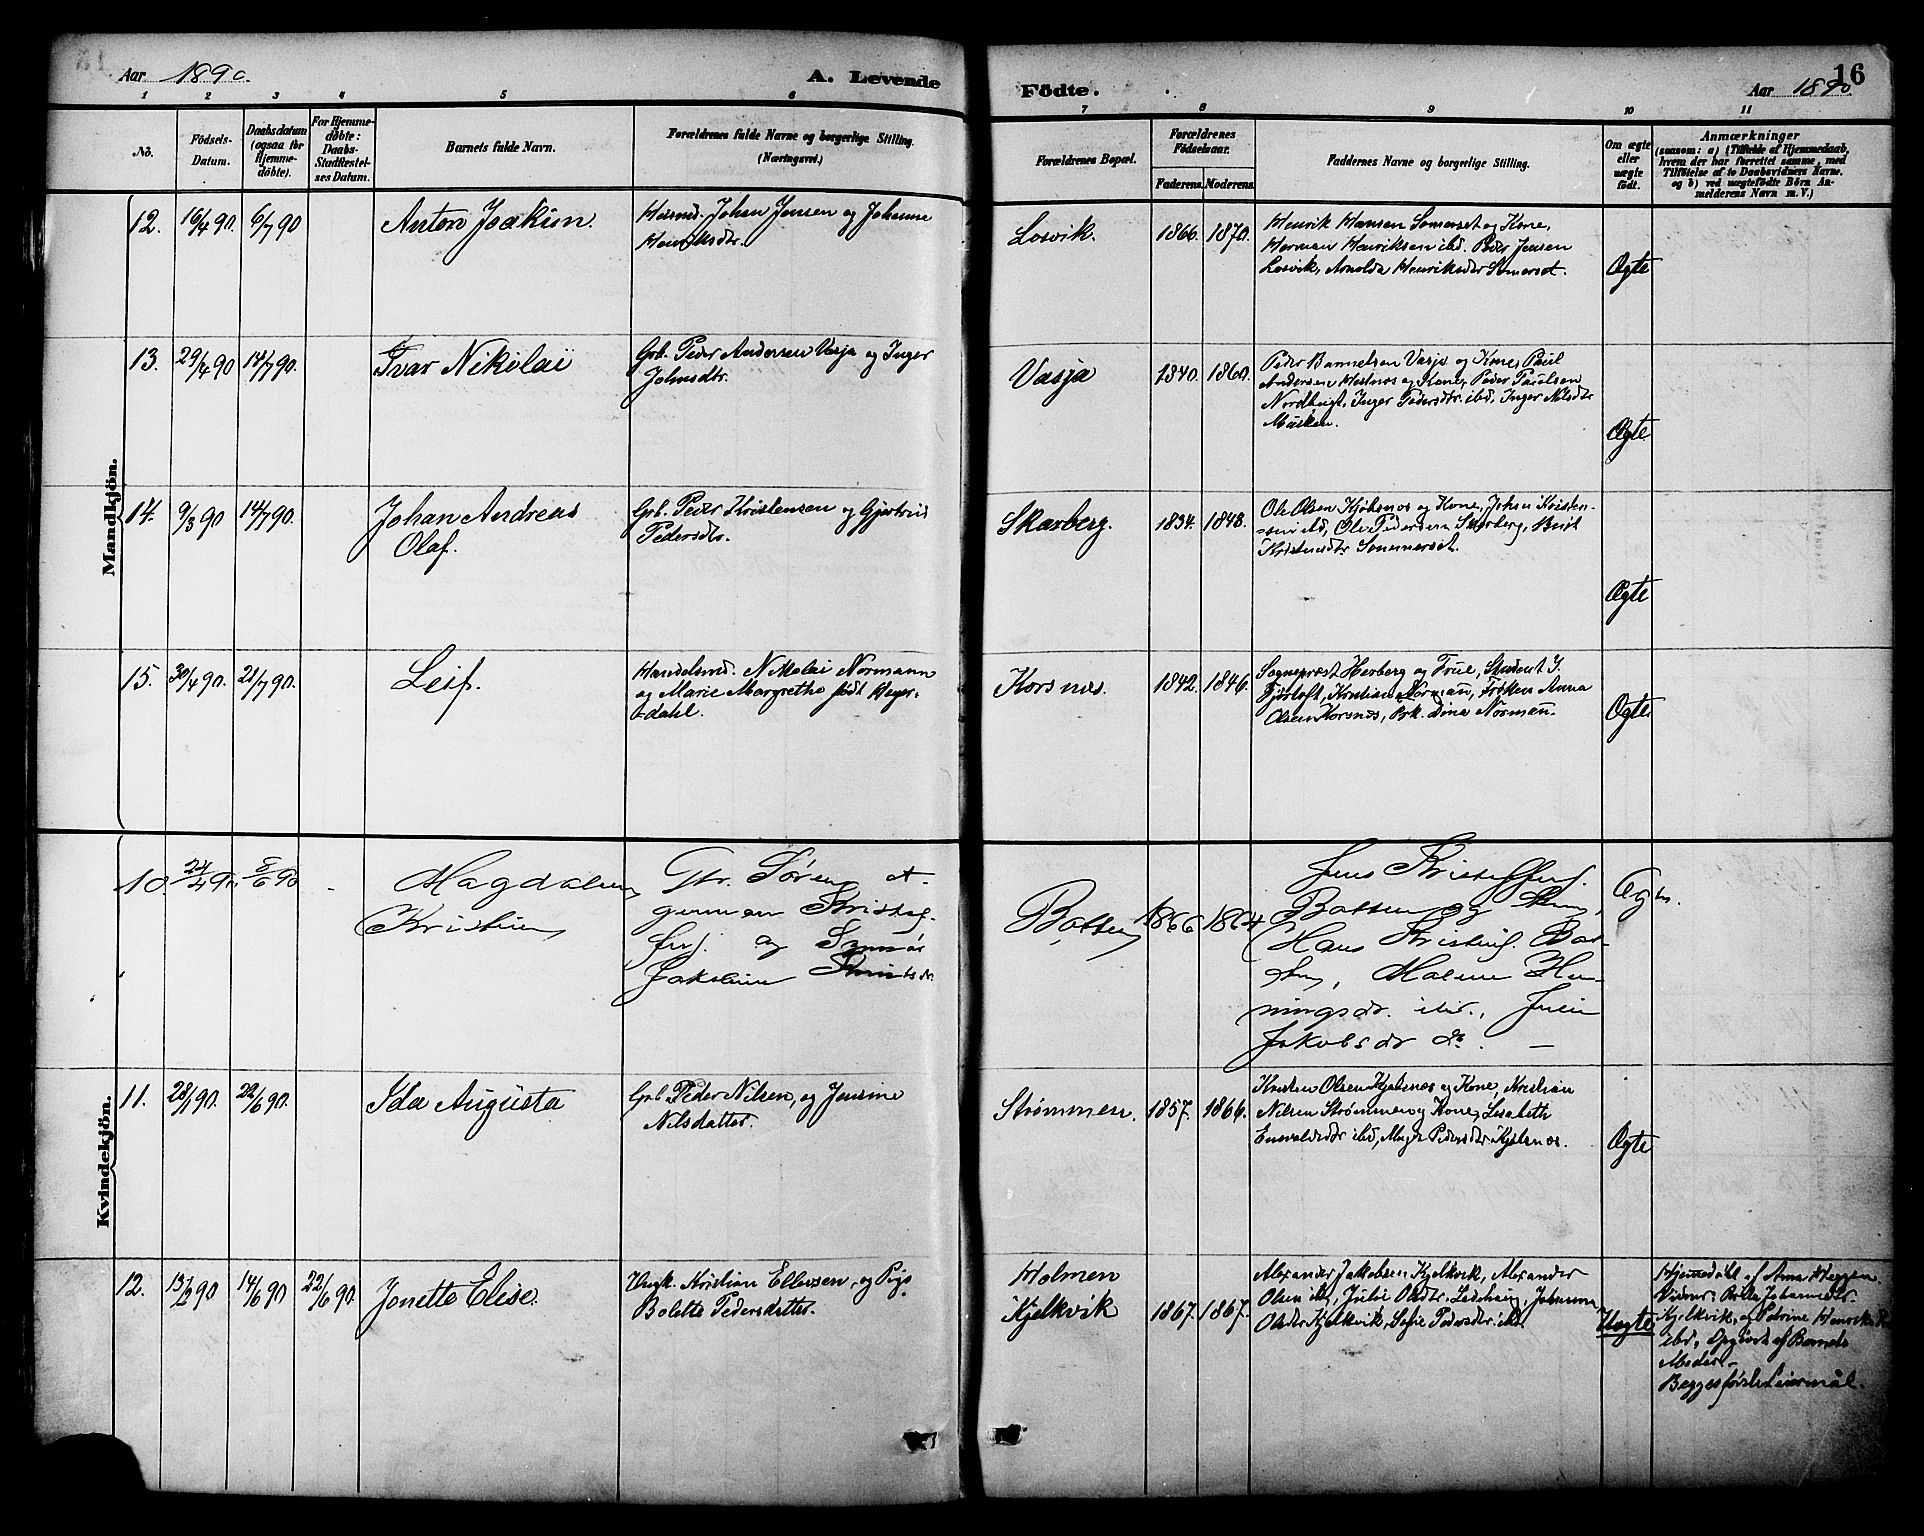 Aar 1890.
A. Levende
Födte.
Aar 1890.
16
1 2 3 4 5 6 7 8 9 10 11
No.
Födsels-
Datum.
Daabsdatum
(ogsaa for
Hjemme-
döbte).
For Hjemme-
döbte:
Daabs-
Stadfæstel-
ses Datum.
Barnets fulde Navn.
Forældrenes fulde Navne og borgerlige Stilling.
(Næringsvei.)
Forældrenes Bopæl.
Forældrenes
Födselsaar.
Faderens. Moderens.
Faddernes Navne og borgerlige Stilling.
Om ægte
eller
uægte
födt.
Anmærkninger
(saasom: a) i Tilfælde af Hjemmedaab,
hvem der har forrettet samme, med
Tilföielse af to Daabsvidners Navne,
og b) ved uægtefödte Börn An-
melderens Navn m. V.)
Mandkjön.
12. 16/4 90. 6/7 90
Anton Joakim.
Husmd. Johan Jensen og Johanne
Henriksdtr.
Losvik.
1866. 1870.
Henrik Hansen Somerset og Kone,
Herman Henriksen ibd. Peder Jensen
Losvik, Arnolda Henriksdtr Somerset.
Ægte
13. 29/4 90 14/7 90.
Ivar Nikolai
Grb. Peder Andersen Vasja og Inger
Johnsdtr.
Vasja
1840. 1860.
Peder Vasja og Kone, Paul
Andersen Hestnes og Kone, Peder Paulsen
Inger Pedersdtr. ibd, Inger Nilsdtr
Musken.
Ægte
14. 9/3 90 14/7 90.
Johan Andreas
Olaf.
Grb. Peder Kristensen og Gjertrud
Pedersdtr.
Skarberg.
1834. 1848.
Ole Olsen Kjøbsnes og Kone, Johan Kristen-
sen ibd, Ole Pedersen Skarberg, Berit
Kristensdtr Sommerset.
Ægte
15. 30/4 90. 21/7 90.
Leif.
Handelsmd. Nikolai Normann
og Marie Margrethe født Heger-
dahl.
Korsnæs.
1842. 1846.
Sogneprest Herberg og Frue, Student J.
Fjørtoft, Kristian Norman, Frøken Anna
Olsen Korsnes, Prk. Dina Norman.
Ægte
Kvindekjön.
10. 24/4 90. 8/6 90
Magdalena
Kristine
Gbr. Søren A-
german Kristof-
fers. og
Jakobine
Botten
1866 1864
Jens Kristoffers.
Botten og
Hans Bot-
ten, Malene Hen-
ningsdr. ibd.,
Jakobsdr do. —
Ægte.
11. 28/1 90. 22/6 90.
Ida Augusta
Grb Peder Nilsen, og Jensine
Nilsdatter.
Strømmen.
1857. 1866.
Kristen Olsen Kjøbsnes og Kone, Kristian
Nilsen Strømmen og Kone, Lisabeth
Enevoldsdtr ibd, Pedersdtr Kjøbsnes.
Ægte
12. 13/2 90 14/6 90 22/6 90
Jonette Elise.
Ungk. Kristian Ellevsen, og Pige
Bolette Pedersdatter.
Holmen
Kjelkvik
1867. 1867.
Alexander Jakobsen Kjelkvik, Alexander
Olsen ibd, Julie Olsdtr. Johanna
Olsdtr Kjelkvik, Sofie Pedersdtr ibd.
Uægte
Hjemedøbt af Anna Heggen.
Vidner: Johannesdtr.
Kjelkvik, og Petrine Henriksdtr
ibd, Opgivet af Barnets
Moder.
Begges første Leiermål.